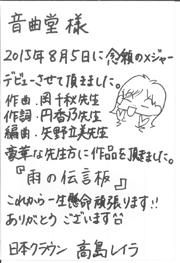 音曲堂 様
2015年8月5日に念願のメジャー
デビューさせて頂きました。
作曲・岡千秋先生
作詞・円香乃先生
編曲・矢野立美先生
豪華な先生方に作品を頂きました。
『雨の伝言板』
これから一生懸命頑張ります!!
ありがとうございます
日本クラウン 高島レイラ